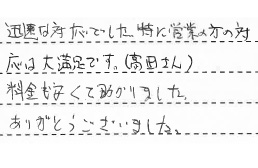 迅速な対応でした。特に営業の方の対
応は大満足です。(高田さん)
料金も安くて助かりました。
ありがとうございました。